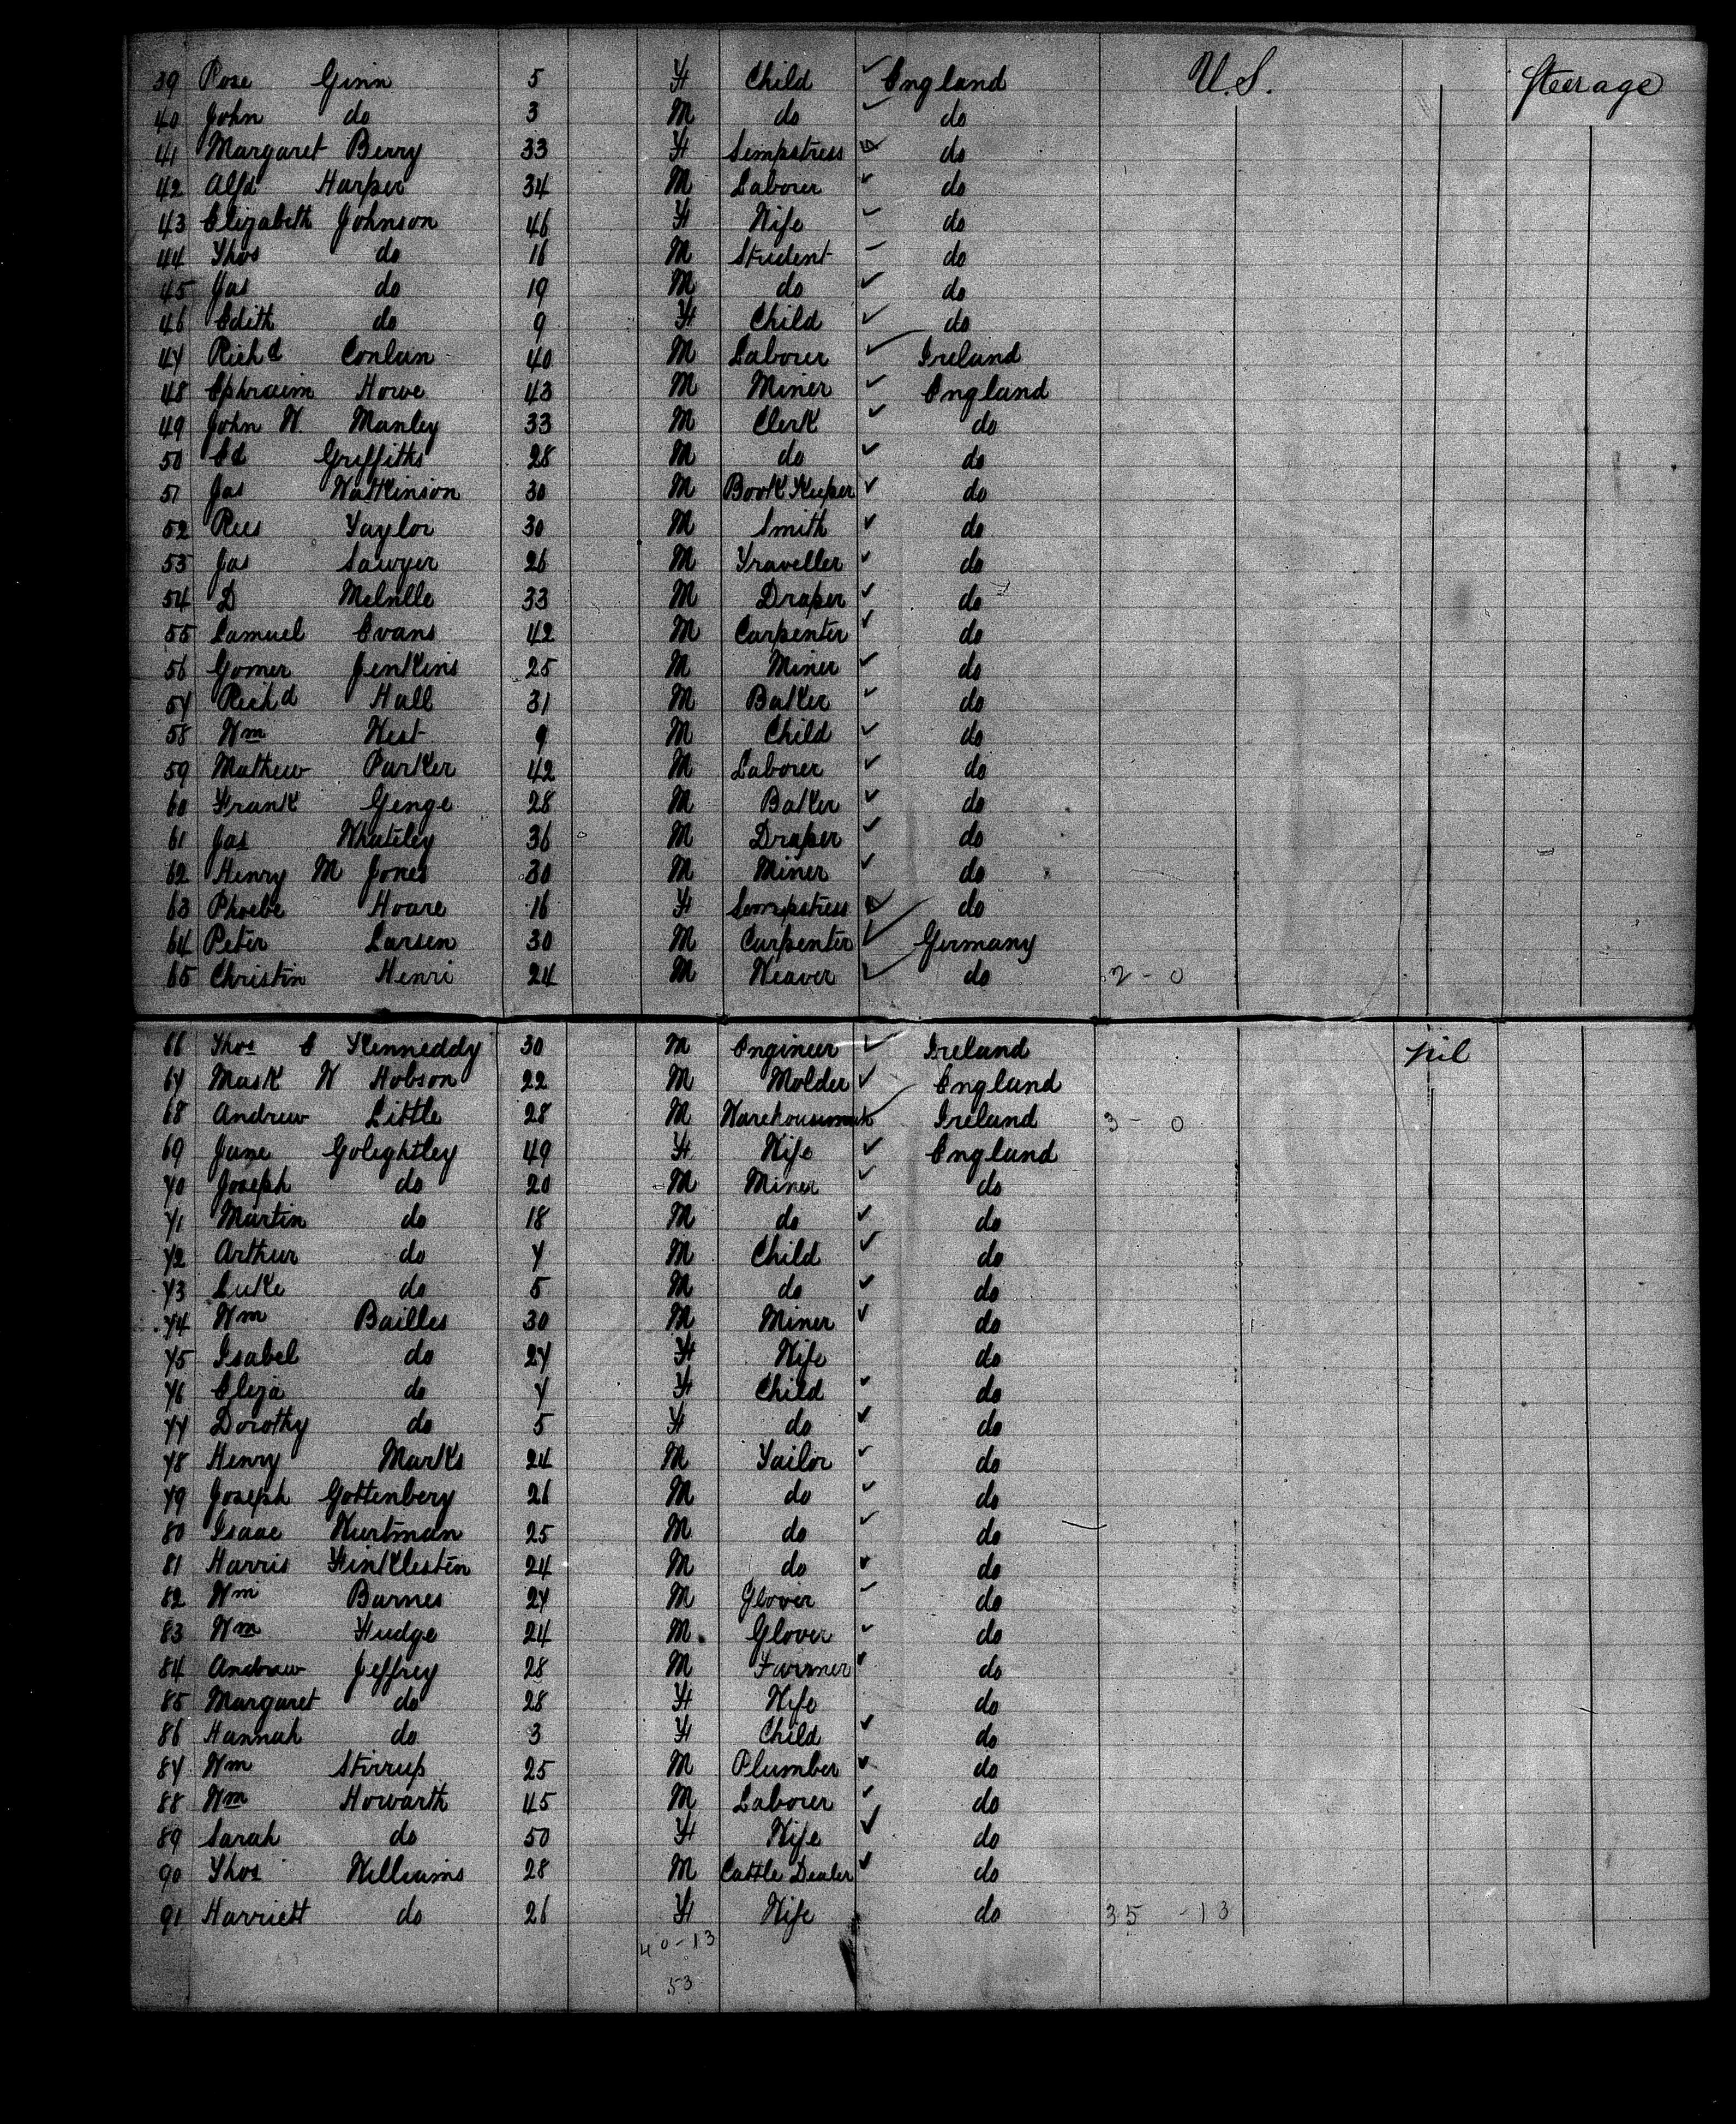 39 Rose Ginn 5 F Child England U.S. Steerage
40 John do 3 M do do
41 Margaret Berry 33 F Sempstress do
42 Alfd Harper 34 M Laborer do
43 Elizabeth Johnson 46 F Wife do
44 Thos do 16 M Student do
45 Jas do 19 M do do
46 Edith do 9 F Child do
47 Richd Conlan 40 M Laborer Ireland
48 Ephraim Howe 43 M Miner England
49 John W. Manley 33 M Clerk do
50 Ed Griffiths 28 M do do
51 Jas Watkinson 30 M Book Keeper do
52 Rees Taylor 30 M Smith do
53 Jas Sawyer 26 M Traveller do
54 D 33 M Draper do
55 Samuel Evans 42 M Carpenter do
56 Gomer Jenkins 25 M Miner do
57 Richd Hall 31 M Baker do
58 Wm West 9 M Child do
59 Mathew Parker 42 M Laborer do
60 Frank Genge 28 M Baker do
61 Jas Whateley 36 M Draper do
62 Henry M Jones 30 M Miner do
63 Phoebe Hoare 16 F Sempstress do
64 Peter Larsen 30 M Carpenter Germany
65 Christin Henri 24 M Weaver do 2 - 0
66 Thos E Kenneddy 30 M Engineer Ireland nil
67 Mark W Hobson 22 M Molder England
68 Andrew Little 28 M Warehouseman Ireland 3 - 0
69 Jane Golightley 49 F Wife England
70 Joseph do 20 M Miner do
71 Martin do 18 M do do
72 Arthur do 7 M Child do
73 Luke do 5 M do do
74 Wm Bailles 30 M Miner do
75 Isabel do 27 F Wife do
76 Eliza do 7 F Child do
77 Dorothy do 5 F do do
78 Henry Marks 24 M Tailor do
79 Joseph Gottenberg 26 M do do
80 Isaac Hurtman 25 M do do
81 Harris Finklestin 24 M do do
82 Wm Barnes 27 M Glover do
83 Wm Fudge 24 M. Glover do
84 Andrew Jeffrey 28 M Farmer do
85 Margaret do 28 F Wife do
86 Hannah do 3 F Child do
87 Wm Stirrup 25 M Plumber do
88 Wm Howarth 45 M Laborer do
89 Sarah do 50 F Wife do
90 Thos Williams 28 M Cattle Dealer do
91 Harriett do 26 F Wife do 35 - 13
40-13
53